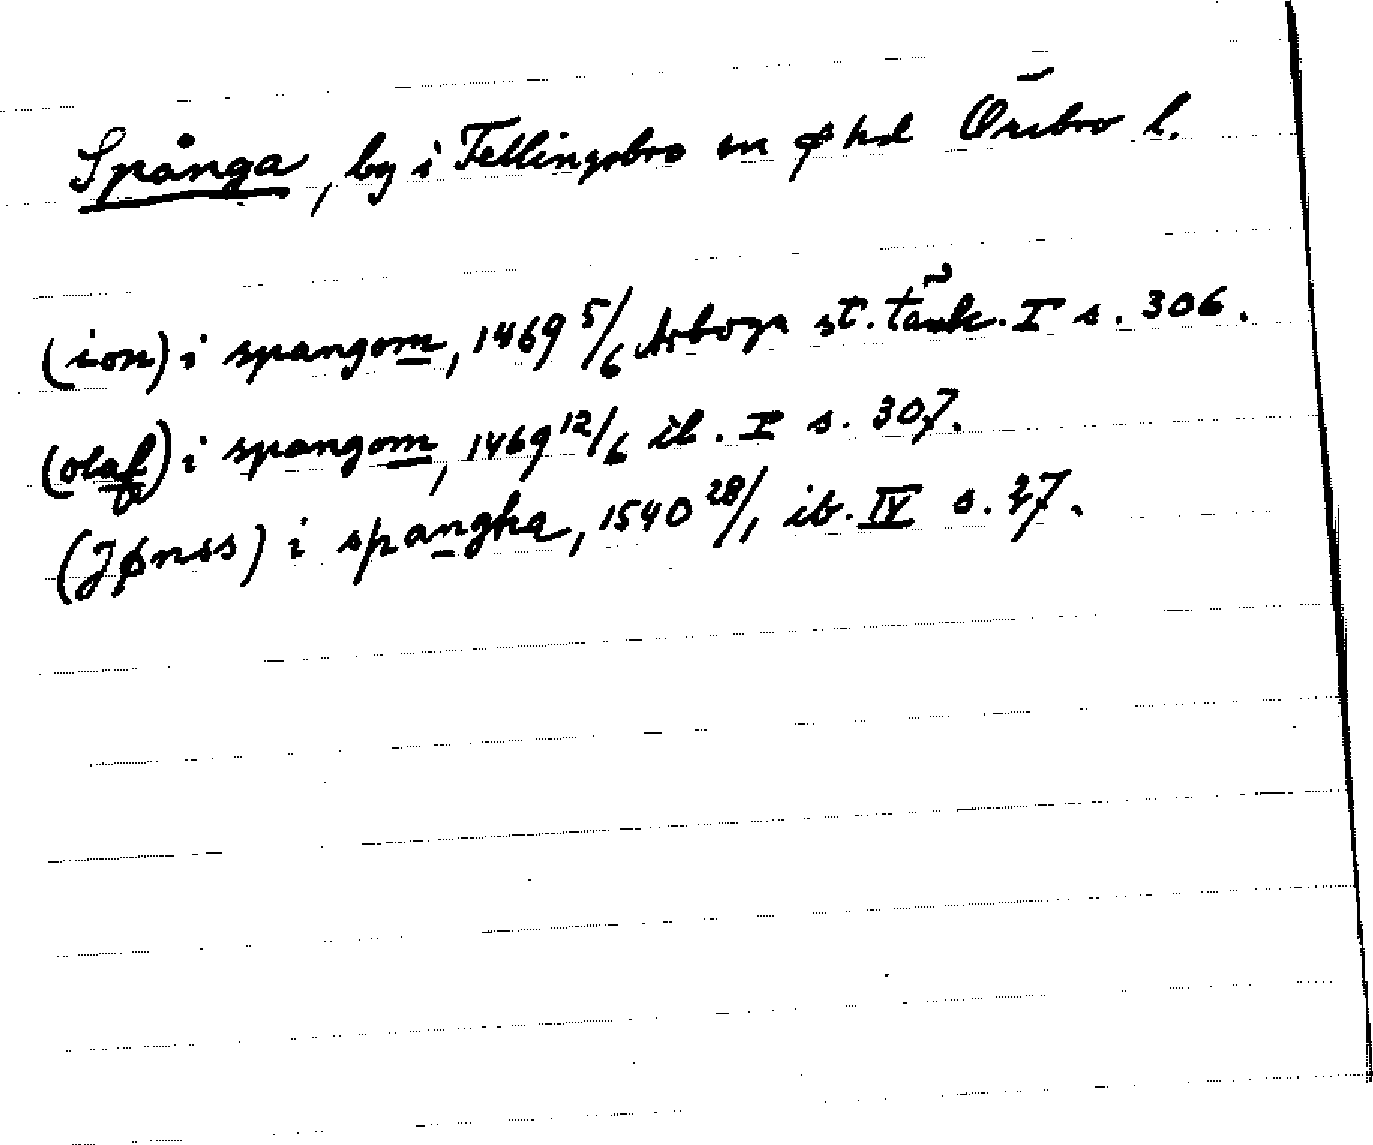 Spånga, by i Fellingsbro sn o hd Örebro l.
(ion) i spangom, 1469 5/6 Arboga st. tänk. I s. 306.
(olaf) i spangom, 1469 12/6 ib. I s. 307.
(Jønss) i spangha, 1540 28/1 ib. IV s. 27.